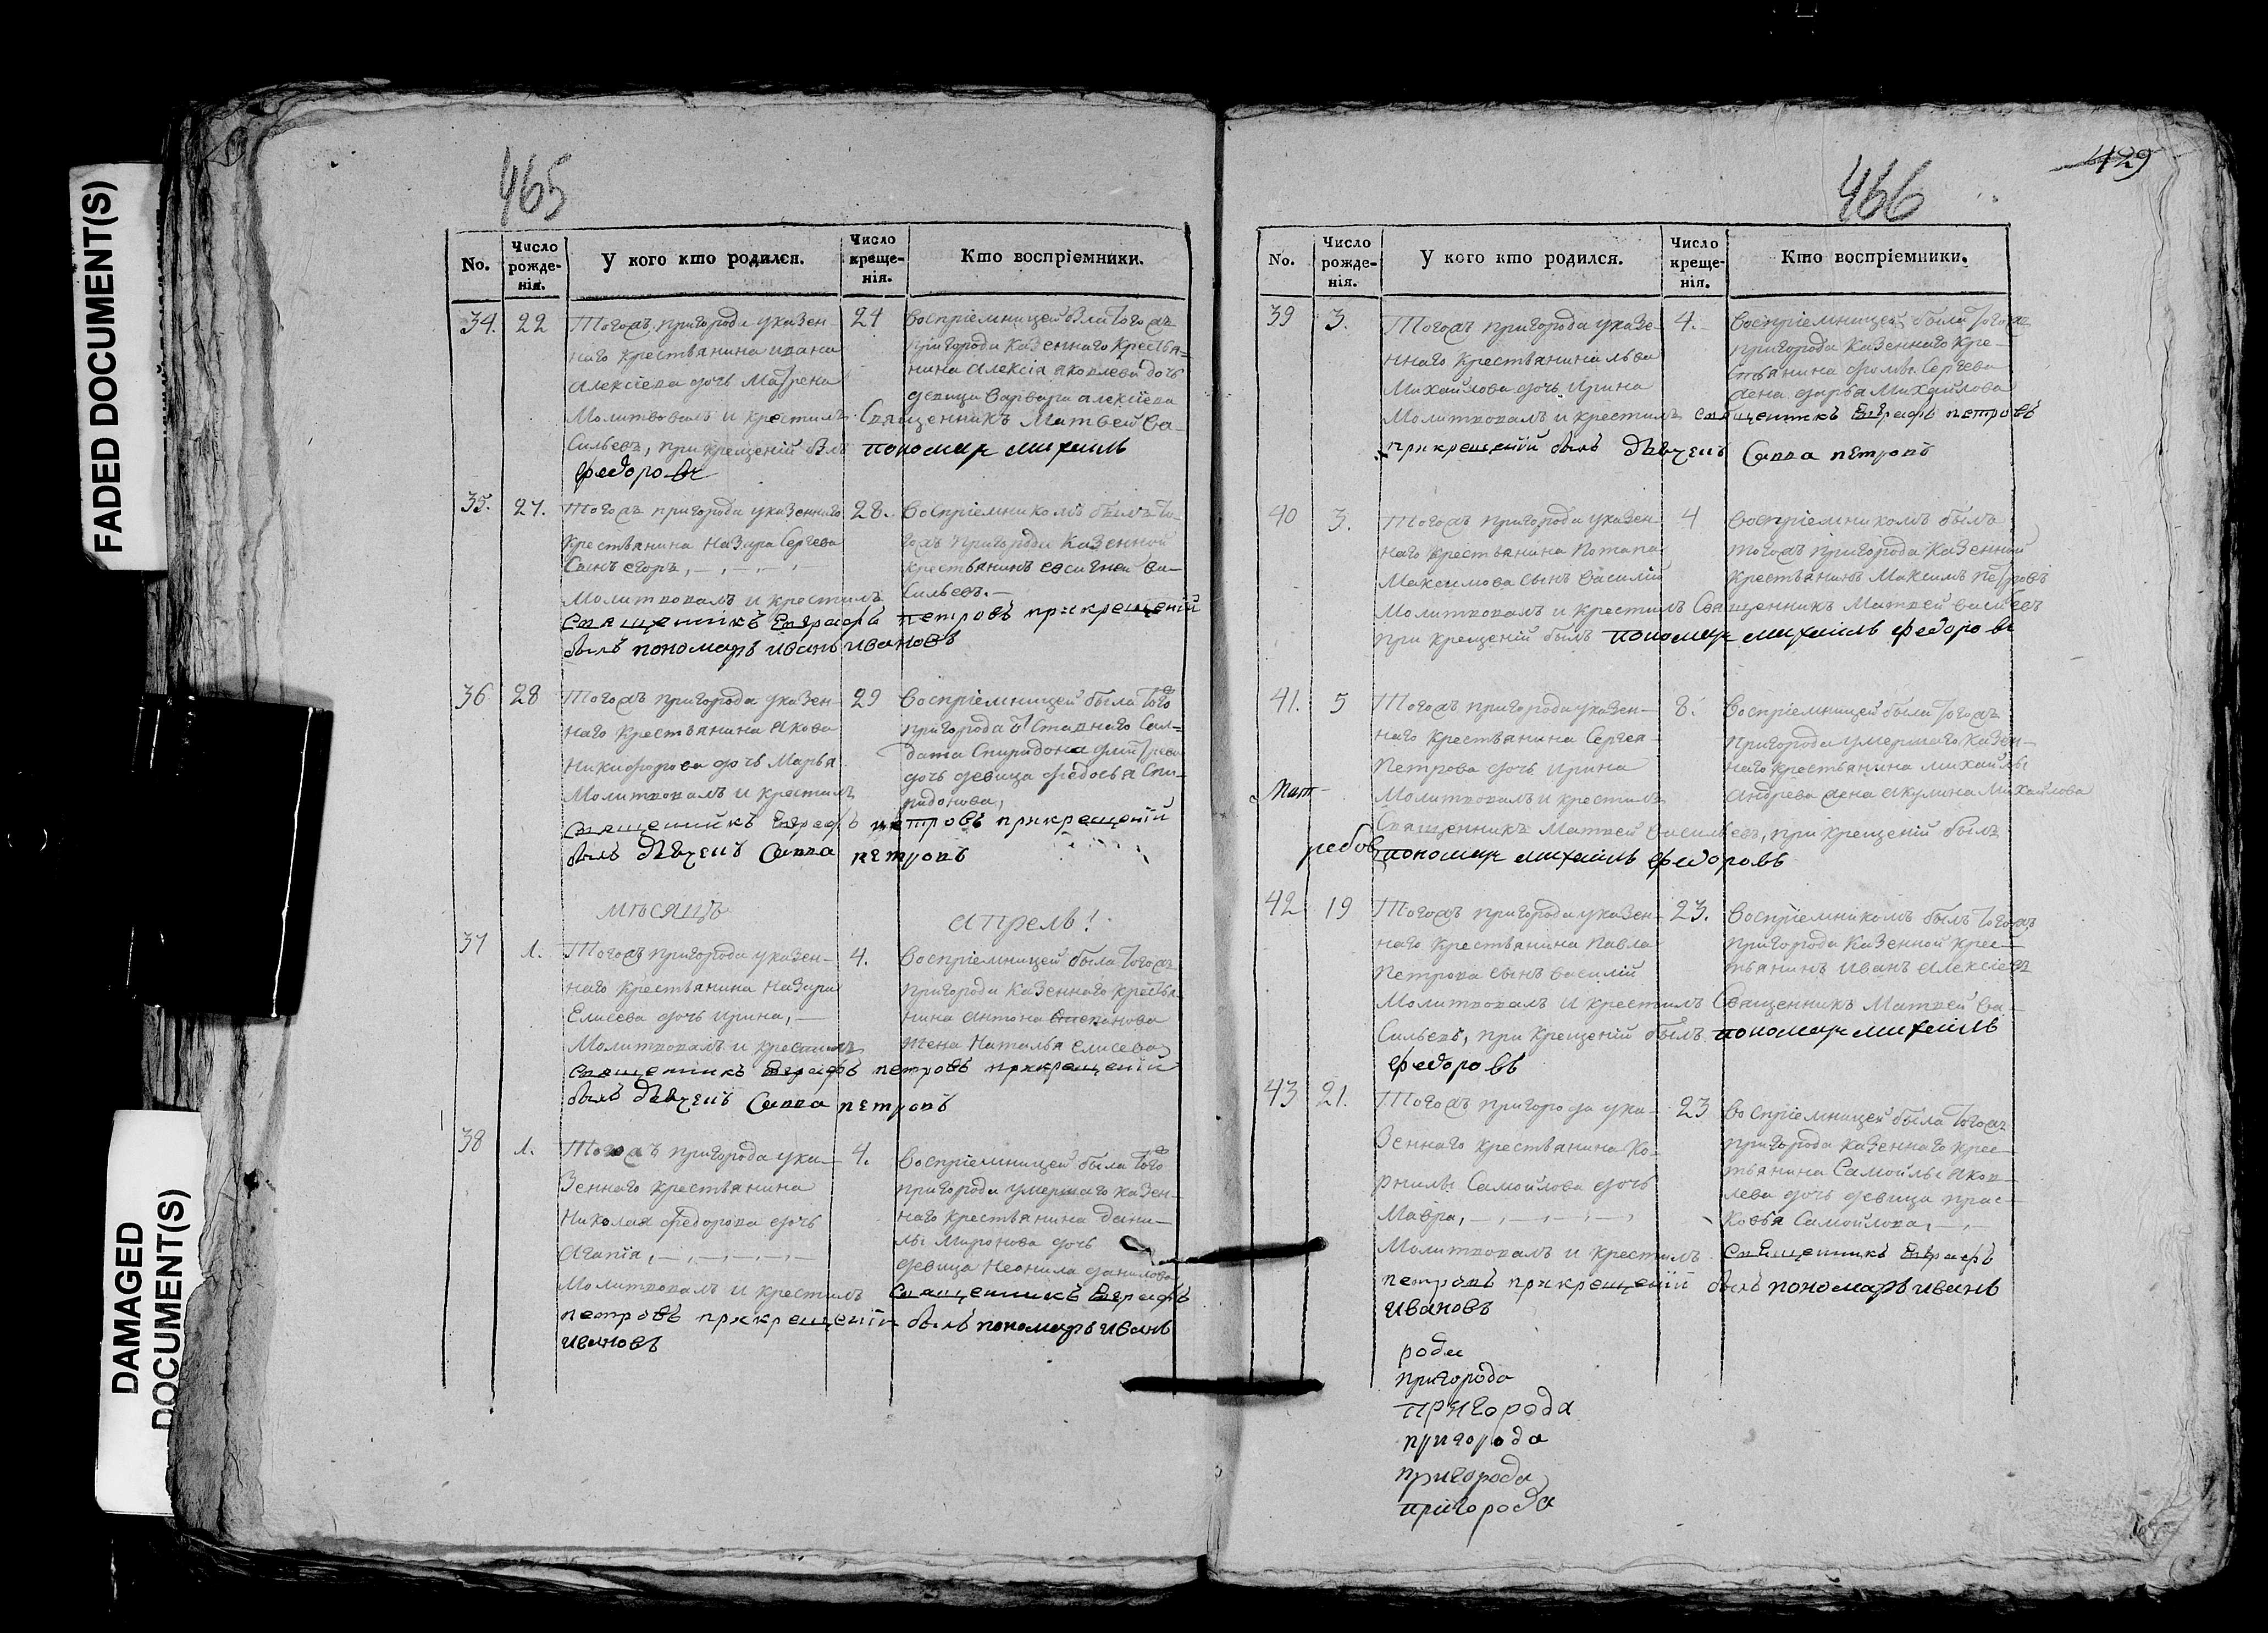 FADED DOCUMENT(S)
DAMAGED
DOCUMENT(S)
465
No.
Число
рожде-
нія.
У кого кто родился.
Число
креще-
нія.
Кто воспріемники.
34. 22
Тогожъ пригорода указен-
наго крестьянина ивана
Алексіева дочь Матрена
24
Воспріемницей была тогожъ
пригорода казеннаго крестья-
нина Алексія яковлева дочь
девица варвара алексіева
Молитвовалъ и крестилъ Священникъ Матвей Ва-
сильевъ, при крещеній былъ пономаръ михаилъ
федоровъ
35. 27.
Тогожъ пригорода указеннаго
крестьянина Назара Сергева
Сынъ егоръ,
28.
Воспріемникомъ былъ то-
гожъ пригорода казенной
крестьянинъ евсигней ва-
сильевъ.
Молитвовалъ и крестилъ
священникъ Евграфъ петровъ прикрещеній
былъ пономаръ иванъ ивановъ
36 28
Тогожъ пригорода указен-
наго крестьянина Якова
Никифорова дочь Марья
29
Воспріемницей была того
пригорода отставнаго Сол-
дата Спиридона дмитрева
дочь девица федосья Спи-
ридонова,
Молитвовалъ и крестилъ
священникъ Евграфъ петровъ прикрещеній
былъ дьячекъ Савва петровъ
мѣсяцъ апрель!
37 1.
Тогожъ пригорода указен-
наго крестьянина Назара
Елисева дочь ирина,
4.
Воспріемницей была тогожъ
пригорода казеннаго крестья-
нина антона Степанова
жена Наталья елисева
Молитвовалъ и крестилъ
священникъ Евграфъ петровъ прикрещеній
былъ дьячекъ Савва петровъ
38 1.
Тогожъ пригорода ука-
зеннаго крестьянина
Николая федорова дочь
Агапія,
4.
Воспріемницей была того
пригорода умершаго казен-
наго крестьянина дани-
лы Миронова дочь
девица Неонила данилова
Молитвовалъ и крестилъ священникъ Евграфъ
петровъ прикрещеній былъ пономаръ иванъ
ивановъ
429
466
No.
Число
рожде-
нія.
У кого кто родился.
Число
креще-
нія.
Кто воспріемники.
39 3.
Тогожъ пригорода указе-
ннаго крестьянина льва
Михайлова дочь ирина
4.
Воспріемницей была тогожъ
пригорода казеннаго кре-
стьянина Сергева
жена дарья Михайлова
Молитвовалъ и крестилъ священникъ Евграфъ петровъ
прикрещеній былъ дьячекъ Савва петровъ
40 3.
Тогожъ пригорода указен-
наго крестьянина Потапа
Максимова сынъ василій
4
Воспріемникомъ былъ
тогожъ пригорода казенной
крестьянинъ Максимъ петровъ
Молитвовалъ и крестилъ Священникъ Матвей васильевъ
при крещеній былъ пономаръ михаилъ федоровъ
41. 5
Тогожъ пригорода указен-
наго крестьянина Сергея
Петрова дочь ирина
8.
Воспріемницей была тогожъ
пригорода умершаго казен-
наго крестьянина михайлы
андрева жена акулина михайлова
Молитвовалъ и крестилъ
Священникъ Матвей васильевъ, при крещеній былъ
пономаръ михаилъ федоровъ
42 19
Тогожъ пригорода указен-
наго крестьянина Павла
Петрова сынъ василій
23.
Воспріемникомъ былъ тогожъ
пригорода казенной крес-
тьянинъ иванъ алексіевъ
Молитвовалъ и крестилъ Священникъ Матвей ва-
сильевъ, при крещеній былъ пономаръ михаилъ
федоровъ
43 21.
Тогожъ пригорода ука-
зеннаго крестьянина Ко-
рнилы Самойлова дочь
Мавра,
23
Воспріемницей была тогожъ
пригорода казеннаго крес-
тьянина Самойлы яков-
лева дочь девица прас-
ковья Самойлова,
Молитвовалъ и крестилъ священникъ Евграфъ
петровъ прикрещеній былъ пономаръ иванъ
ивановъ
рода
пригорода
пригорода
пригорода
пригорода
пригорода